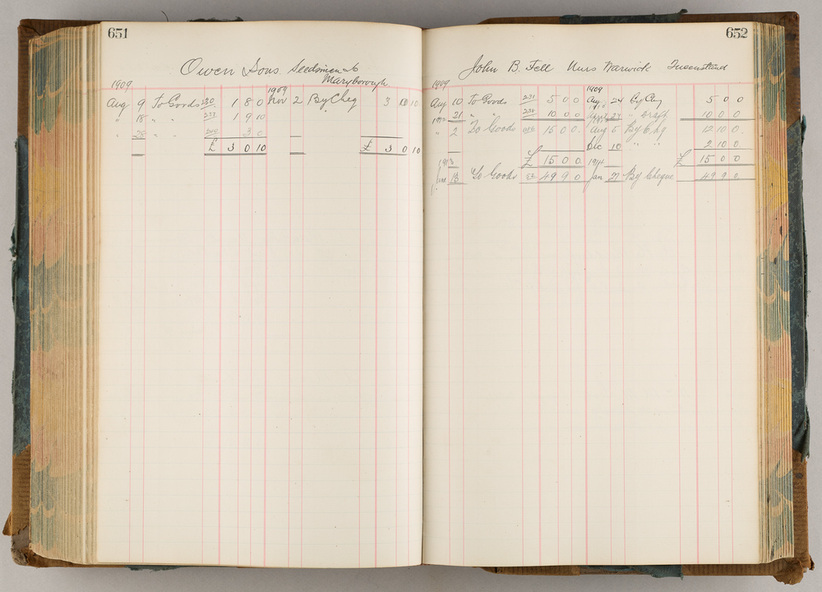 651
Owen Sons Seedsmen &c
Maryborough
1909 1909
Aug 9 To Goods 230 1 8 0 Nov 2 By Cheq 3 0 10
" 18 " " 1 9 10
" " 3 0
£ 3 0 10 £ 3 0 10
652
John B. Fell Nurs Warwick Queensland
1909 1909
Aug 10 To Goods 5 0 0 Aug 24 By Chq 5 0 0
" 21 " 10 0 0 27 " Draft 10 0 0
1910
2 To Goods 15 0 0 Aug 5 By Chq 12 10 0
Dec 10 " " 2 10 0
£ 15 0 0 £ 15 0 0
1913 1914
18 To Goods 49 9 0 Jan 27 By Cheque 49 9 0